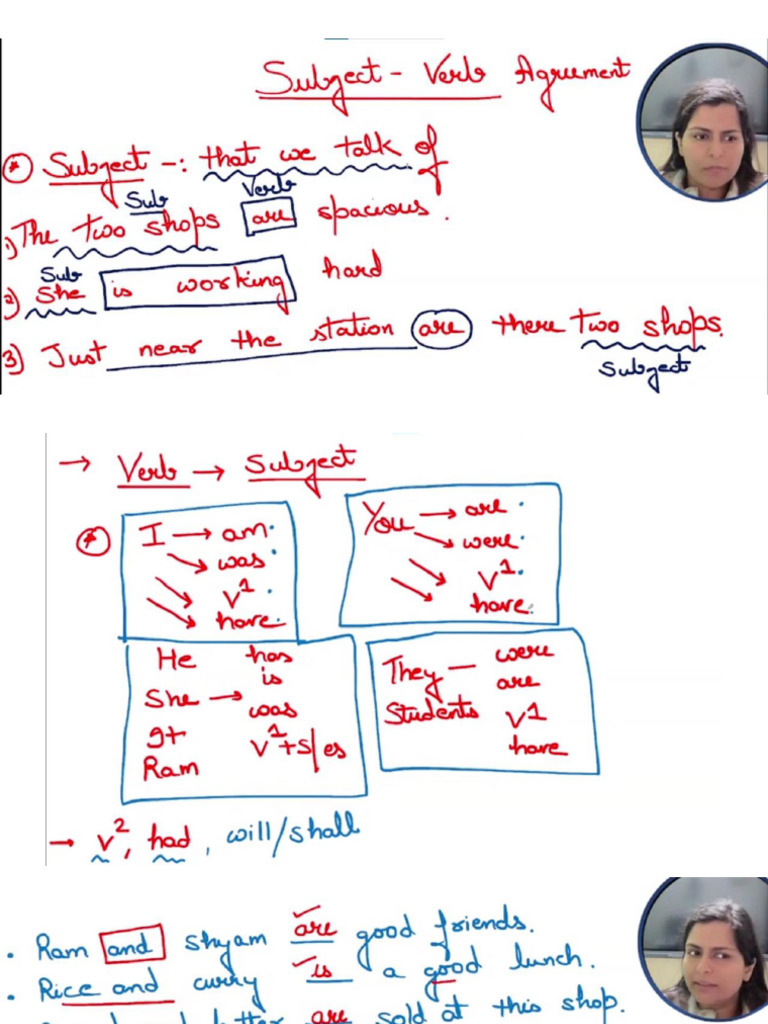 Subject - Verb Agreement
* Subject -: that we talk of
Sub Verb
1) The two shops are spacious.
Sub
2) She is working hard
3) Just near the station are there two shops.
Subject
→ Verb → Subject
* I → am.
was.
V1.
have.
You → are.
were.
V1.
have.
He has
is
She → was
It V1+s/es
Ram
They — were
are
Students V1
have
→ V2, had, will/shall
. Ram and Shyam are good friends.
. Rice and curry is a good lunch.
are sold at this shop.